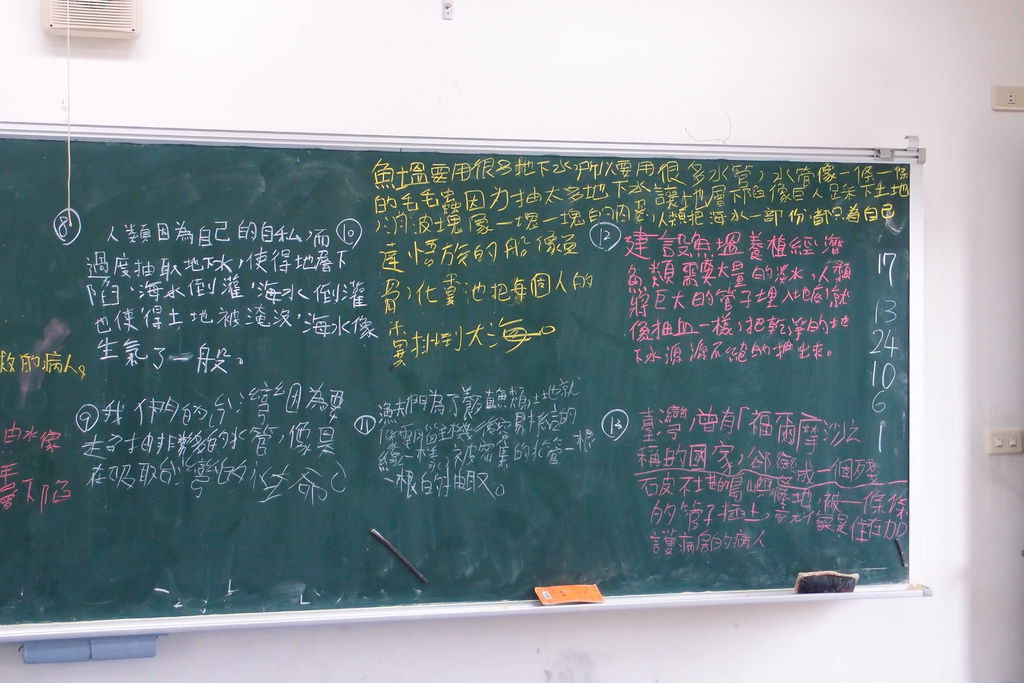 ⑧ 人類因為自己的自私,而
過度抽取地下水,使得地層下
陷,海水倒灌,海水倒灌
也使得土地被淹沒,海水像
生氣了一般。
⑨ 我們的台灣因為要
的水管,像是
在吸取台灣的生命
⑩ 魚塭要用很多地下水,所以要用很多水管,水管像一條一條
的毛毛蟲因為抽太多地下水,讓地層下陷像巨人踩下土地
一塊一塊的肉,人類把海水一部份,都只為自己
族的船像
化糞池把每個人的
排到大海。
⑪ 漁夫們為了養殖魚類,土地就
像
線一樣,被密集的水管一根
一根的抽取。
⑫ 建設魚塭養植經濟
魚類需要大量的淡水,人類
將巨大的管子埋入地底,就
像抽血一樣,把乾淨的地
下水源源不絕的抽出來。
⑬ 臺灣,曾有「福爾摩沙」
稱的國家,卻變成一個殘
被一條條
的管子插上,就像是住在加
護病房的病人
17
13
24
10
6
1
的病人。
水像
下陷